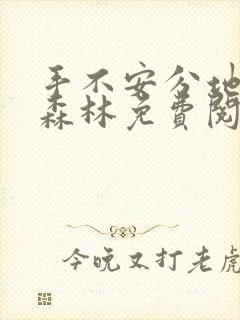 手不安分地
森林免费阅
今晚又打老虎